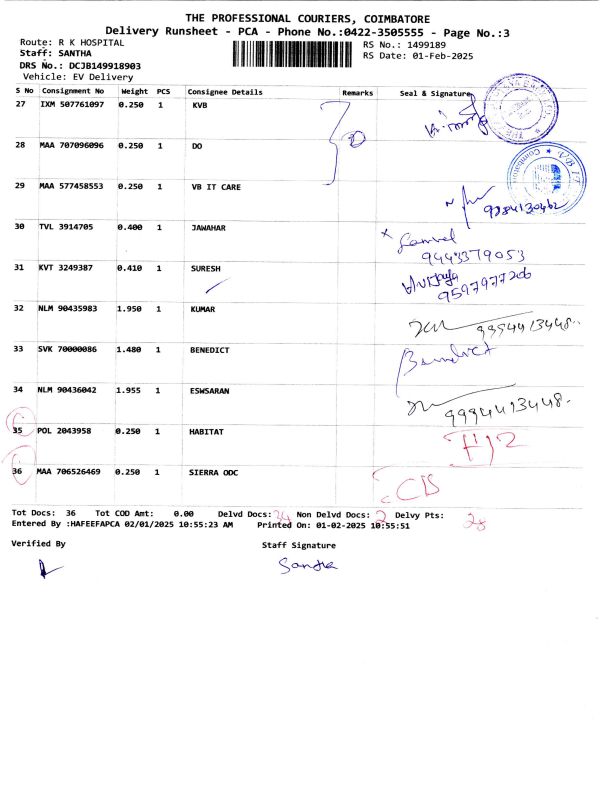 THE PROFESSIONAL COURIERS, COIMBATORE
Delivery Runsheet - PCA - Phone No.:0422-3505555 - Page No.:3
Route: R K HOSPITAL RS No.: 1499189
Staff: SANTHA RS Date: 01-Feb-2025
DRS No.: DCJB149918903
Vehicle: EV Delivery
S No Consignment No Weight PCS Consignee Details Remarks Seal & Signature
27 IXM 507761097 0.250 1 KVB
28 MAA 707096096 0.250 1 DO
29 MAA 577458553 0.250 1 VB IT CARE
30 TVL 3914705 0.400 1 JAWAHAR
9443379053
31 KVT 3249387 0.410 1 SURESH
9597977206
32 NLM 90435983 1.950 1 KUMAR
9994413448.
33 SVK 70000086 1.480 1 BENEDICT Benedict
34 NLM 90436042 1.955 1 ESWSARAN
9994413448.
35 POL 2043958 0.250 1 HABITAT
36 MAA 706526469 0.250 1 SIERRA ODC
Tot Docs: 36 Tot COD Amt: 0.00 Delvd Docs: 34 Non Delvd Docs: 2 Delvy Pts: 28
Entered By :HAFEEFAPCA 02/01/2025 10:55:23 AM Printed On: 01-02-2025 10:55:51
Verified By Staff Signature
Santha